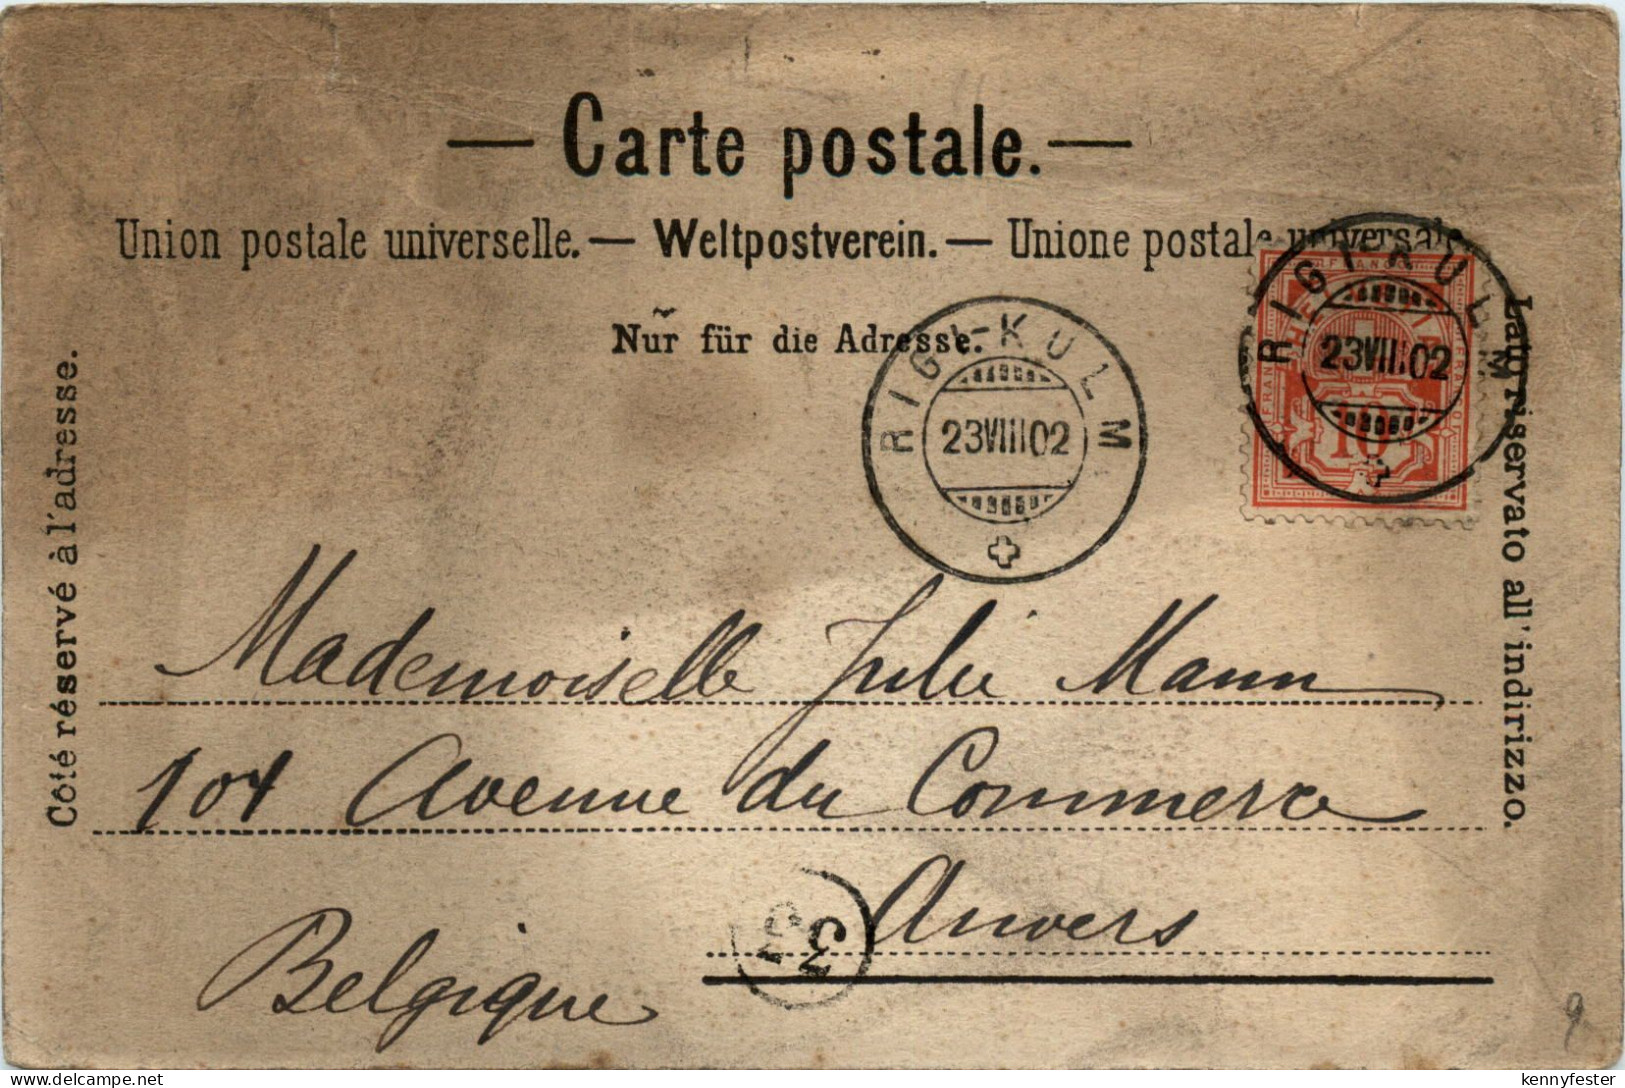 — Carte postale. —
Union postale universelle. — Weltpostverein. — Unione postale universale
Nur für die Adresse.
Côté réservé à l'adresse.
Lato riservato all' indirizzo.
RIGI-KULM
23 VIII 02
RIGI-KULM
23 VIII 02
FRANCO
HELVETIA
10
Mademoiselle Julie Mann
104 Avenue du Commerce
Anvers
Belgique
9
delcampe.net
kennyfester